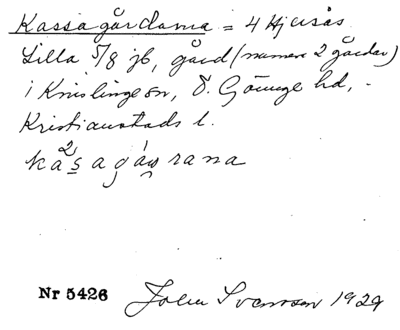 Kassagårdarna = 4 Hjärsås
Lilla 5/8 jb, gård (numera 2 gårdar)
i Knislinge sn, Ö. Göinge hd,
Kristianstads l.
Nr 5426 John Svensson 1929